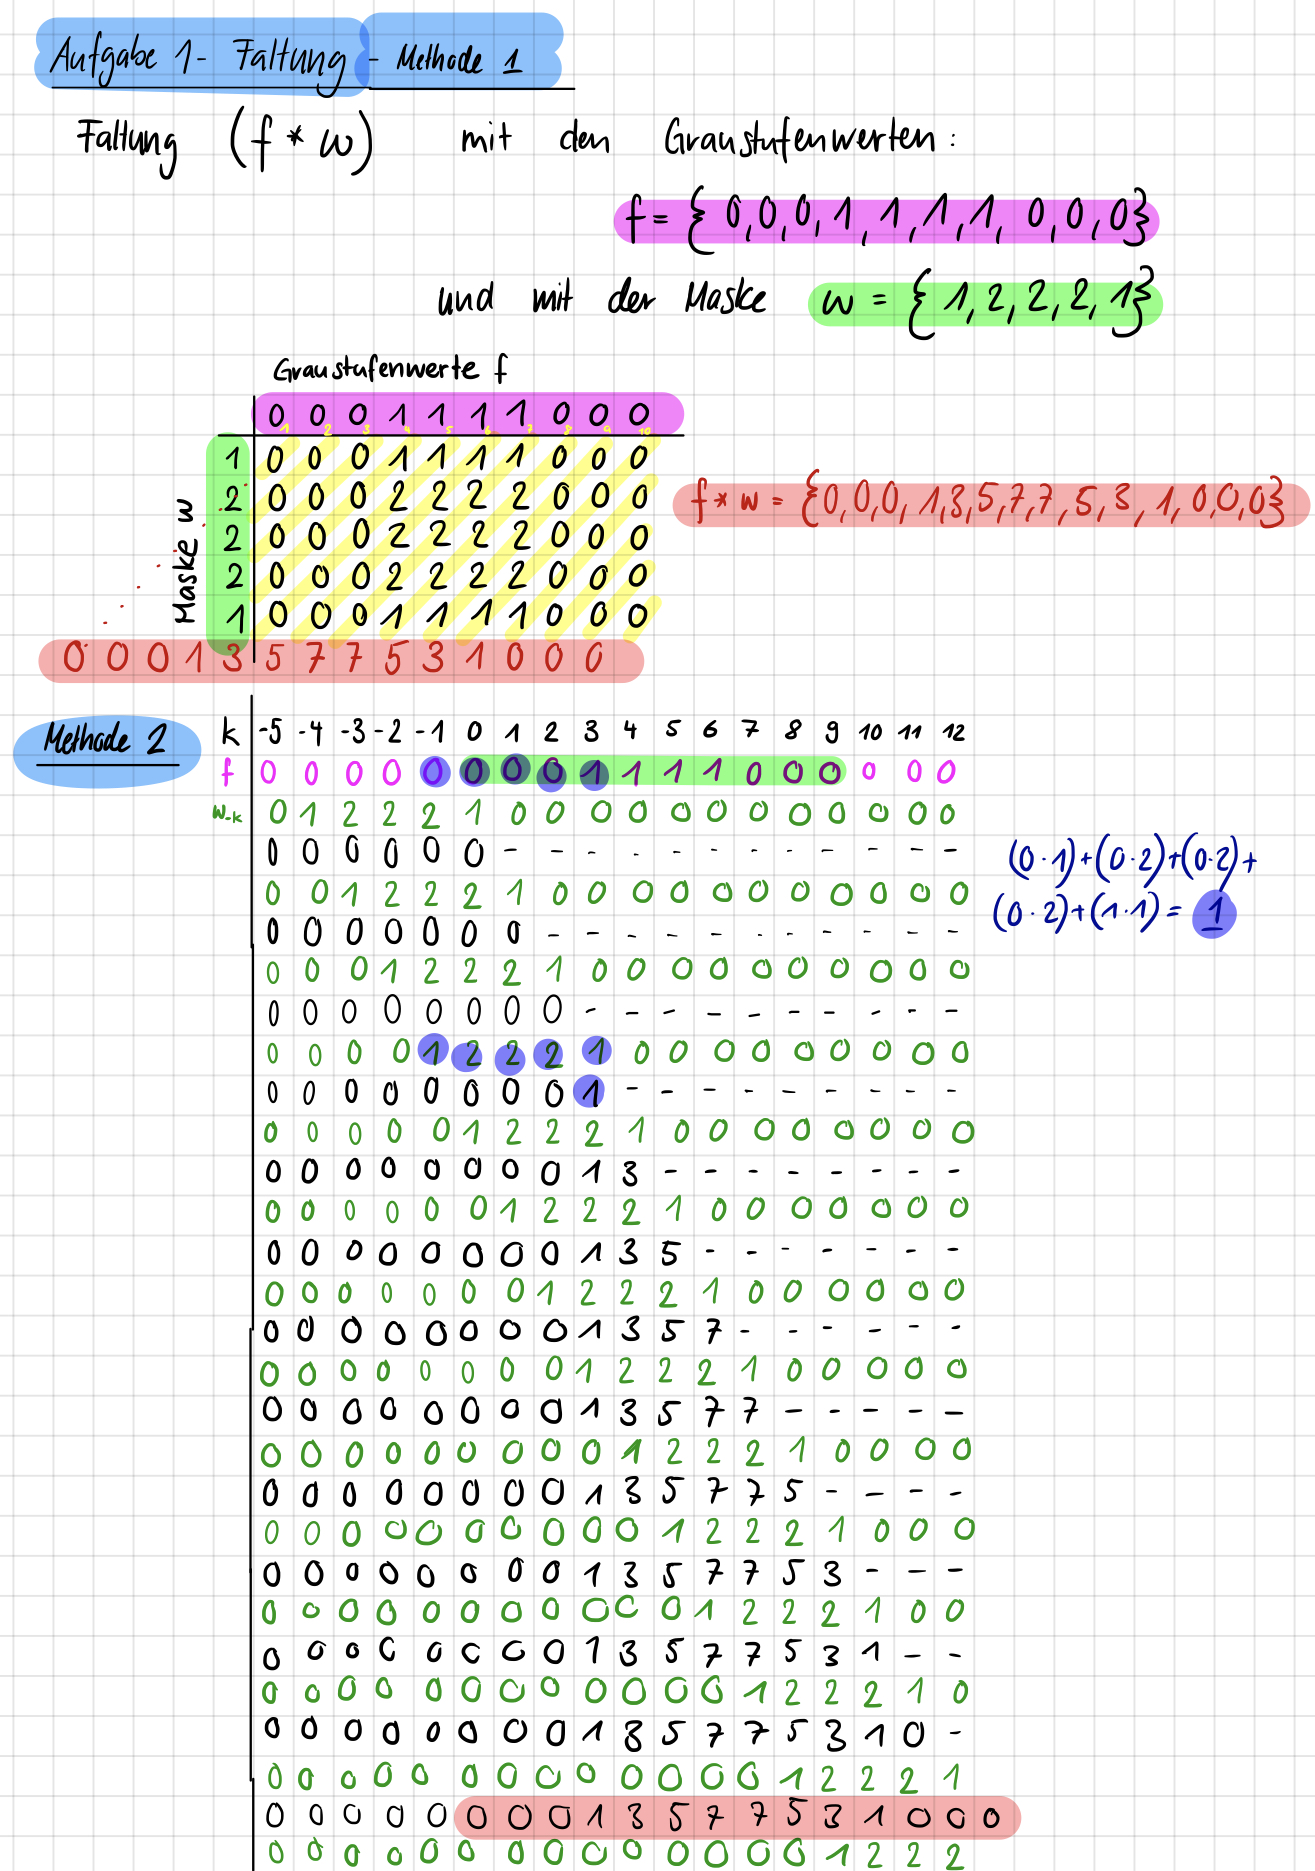 Aufgabe 1 - Faltung - Methode 1
Faltung (f * w) mit den Graustufenwerten:
f = { 0,0,0,1,1,1,1,0,0,0}
und mit der Maske w = { 1,2,2,2,1}
Graustufenwerte f
0 0 0 1 1 1 1 0 0 0
1 2 3 4 5 6 7 8 9 10
Maske w
1 0 0 0 1 1 1 1 0 0 0
2 0 0 0 2 2 2 2 0 0 0
2 0 0 0 2 2 2 2 0 0 0
2 0 0 0 2 2 2 2 0 0 0
1 0 0 0 1 1 1 1 0 0 0
0 0 0 1 3 5 7 7 5 3 1 0 0 0
f * w = {0,0,0,1,3,5,7,7,5,3,1,0,0,0}
Methode 2
k -5 -4 -3 -2 -1 0 1 2 3 4 5 6 7 8 9 10 11 12
f 0 0 0 0 0 0 0 0 1 1 1 1 0 0 0 0 0 0
w-k 0 1 2 2 2 1 0 0 0 0 0 0 0 0 0 0 0 0
0 0 0 0 0 0 - - - - - - - - - - - -
0 0 1 2 2 2 1 0 0 0 0 0 0 0 0 0 0 0
0 0 0 0 0 0 0 - - - - - - - - - - -
0 0 0 1 2 2 2 1 0 0 0 0 0 0 0 0 0 0
0 0 0 0 0 0 0 0 - - - - - - - - - -
0 0 0 0 1 2 2 2 1 0 0 0 0 0 0 0 0 0
0 0 0 0 0 0 0 0 1 - - - - - - - - -
0 0 0 0 0 1 2 2 2 1 0 0 0 0 0 0 0 0
0 0 0 0 0 0 0 0 1 3 - - - - - - - -
0 0 0 0 0 0 1 2 2 2 1 0 0 0 0 0 0 0
0 0 0 0 0 0 0 0 1 3 5 - - - - - - -
0 0 0 0 0 0 0 1 2 2 2 1 0 0 0 0 0 0
0 0 0 0 0 0 0 0 1 3 5 7 - - - - - -
0 0 0 0 0 0 0 0 1 2 2 2 1 0 0 0 0 0
0 0 0 0 0 0 0 0 1 3 5 7 7 - - - - -
0 0 0 0 0 0 0 0 0 1 2 2 2 1 0 0 0 0
0 0 0 0 0 0 0 0 1 3 5 7 7 5 - - - -
0 0 0 0 0 0 0 0 0 0 1 2 2 2 1 0 0 0
0 0 0 0 0 0 0 0 1 3 5 7 7 5 3 - - -
0 0 0 0 0 0 0 0 0 0 0 1 2 2 2 1 0 0
0 0 0 0 0 0 0 0 1 3 5 7 7 5 3 1 - -
0 0 0 0 0 0 0 0 0 0 0 0 1 2 2 2 1 0
0 0 0 0 0 0 0 0 1 3 5 7 7 5 3 1 0 -
0 0 0 0 0 0 0 0 0 0 0 0 0 1 2 2 2 1
0 0 0 0 0 0 0 0 1 3 5 7 7 5 3 1 0 0 0
0 0 0 0 0 0 0 0 0 0 0 0 0 0 1 2 2 2
(0·1)+(0·2)+(0·2)+
(0·2)+(1·1) = 1